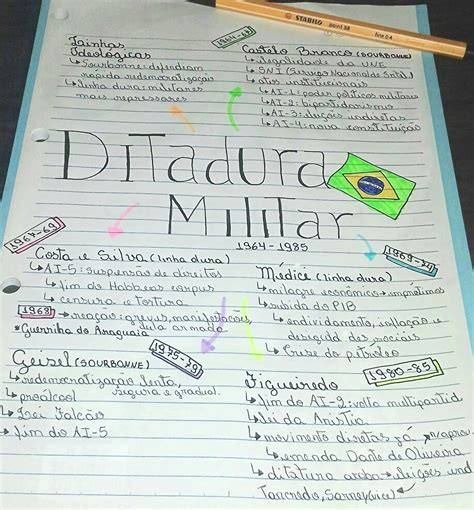 STABILO point 88 fine 0.4
Linhas
Ideológicas
↳ Sourbonne: defendiam
rápida redemocratização
↳ linha dura: militares
mais repressores
1964-67
Castelo Branco (SOURBONNE)
↳ ilegalidade da UNE
↳ SNI (Serviço Nacional de Intel.)
↳ atos institucionais
↳ AI-1: poder políticos militares
↳ AI-2: bipartidarismo
↳ AI-3: eleições indiretas
↳ AI-4: nova constituição
DITADURA
MILITAR
1964 - 1985
1967-69
Costa e Silva (linha dura)
↳ AI-5: suspensão de direitos
↳ fim do Habbeas corpus
↳ censura e tortura
1968 → reação: greves, manifestações,
luta armada
* Guerrilha do Araguaia
1969-74
Médici (linha dura)
↳ milagre econômico → empréstimos
↳ subida do PIB
↳ endividamento, inflação e
desigualdades sociais
↳ Crise do petróleo
1975-79
Geisel (SOURBONNE)
↳ redemocratização lenta,
segura e gradual.
↳ proálcool
↳ Lei Falcão
↳ fim do AI-5
1980-85
Figueiredo
↳ fim do AI-2: volta multipartid.
↳ lei da Anistia
↳ movimento diretas já
↳ emenda Dante de Oliveira
↳ ditatura acaba → eleições ind
Tancredo, Sarney (vice)